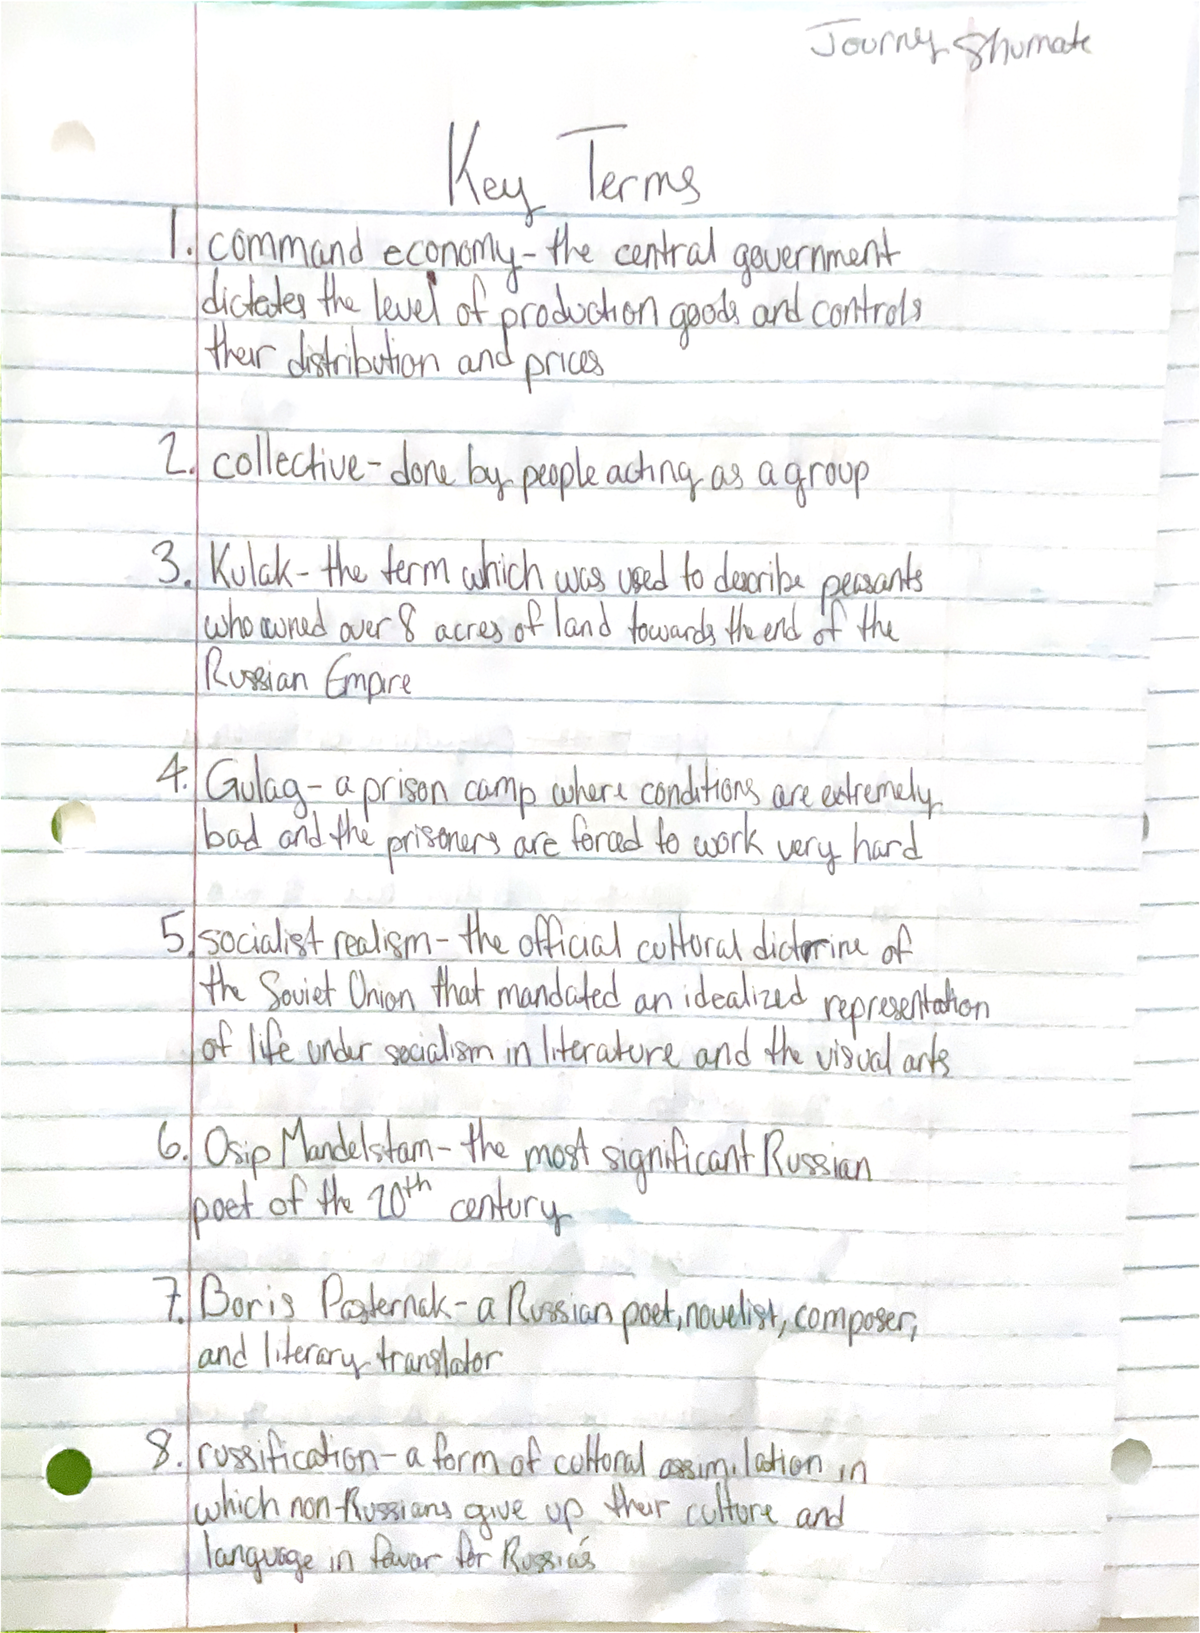 Journey Shumate
Key Terms
1. command economy- the central government
dictates the level of production goods and controls
their distribution and prices
2. collective- done by people acting as a group
3. Kulak- the term which was used to describe peasants
who owned over 8 acres of land towards the end of the
Russian Empire
4. Gulag- a prison camp where conditions are extremely
bad and the prisoners are forced to work very hard
5. socialist realism- the official cultural dictorine of
the Soviet Union that mandated an idealized representation
of life under socialism in literature and the visual arts
6. Osip Mandelstam- the most significant Russian
poet of the 20th century
7. Boris Pasternak- a Russian poet, novelist, composer,
and literary translator
8. russification- a form of cultural assimilation in
which non-Russians give up their culture and
language in favor for Russia's